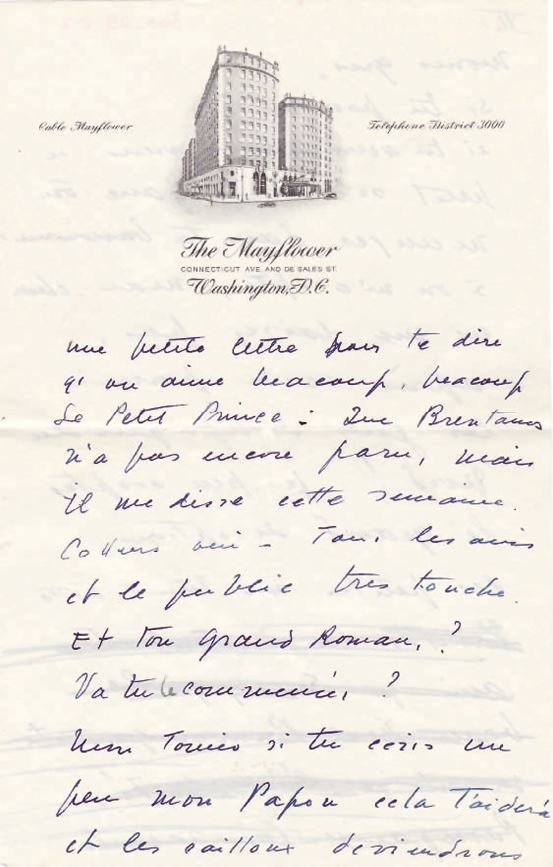 Cable Mayflower
Telephone District 3000
The Mayflower
CONNECTICUT AVE. AND DE SALES ST.
Washington, D.C.
une petite lettre pour te dire
qu'on aime beaucoup, beaucoup
Le Petit Prince. Que Brentanos
n'a pas encore paru, mais
il me disse cette semaine.
oui - Tous les amis
et le public tres touche.
Et ton grand Roman, ?
Va tu le commencé, ?
Mon Tonio si tu ecris un
peu mon Papou cela t'aidera
et les cailloux deviendrons